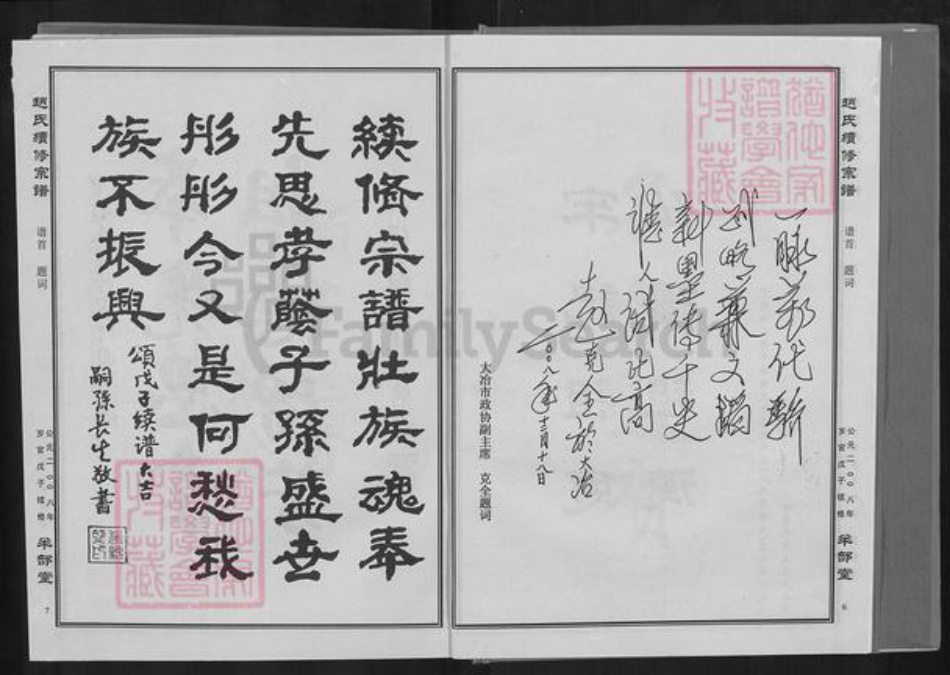 趙氏續修宗譜
谱首 题词
公元二〇〇八年
岁官戊子续修
半部堂
6
一脉万代
新墨传千史
赵克全於大冶
二〇〇八年十二月十八日
大冶市政协副主席 克全题词
續修宗譜壯族魂奉
先思孝蔭子孫盛世
彤彤今又是何愁我
族不振興
頌戊子续谱大吉
嗣孫长生敬書
趙氏續修宗譜
谱首 题词
公元二〇〇八年
岁官戊子续修
半部堂
7
FamilySearch